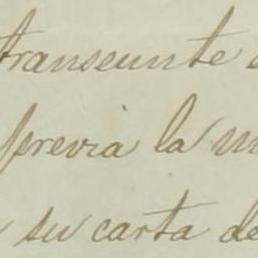 transeunte
previa la
su carta de